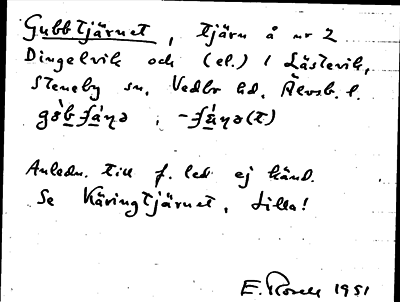 Gubbtjärnet, tjärn å nr 2
Dingelvik och (el.) 1 Lästevik,
Steneby sn, Vedbo hd, Älvsb. l.
Anledn. till f. led ej känd.
Se Käringtjärnet, Lilla!
E. Rosell 1951